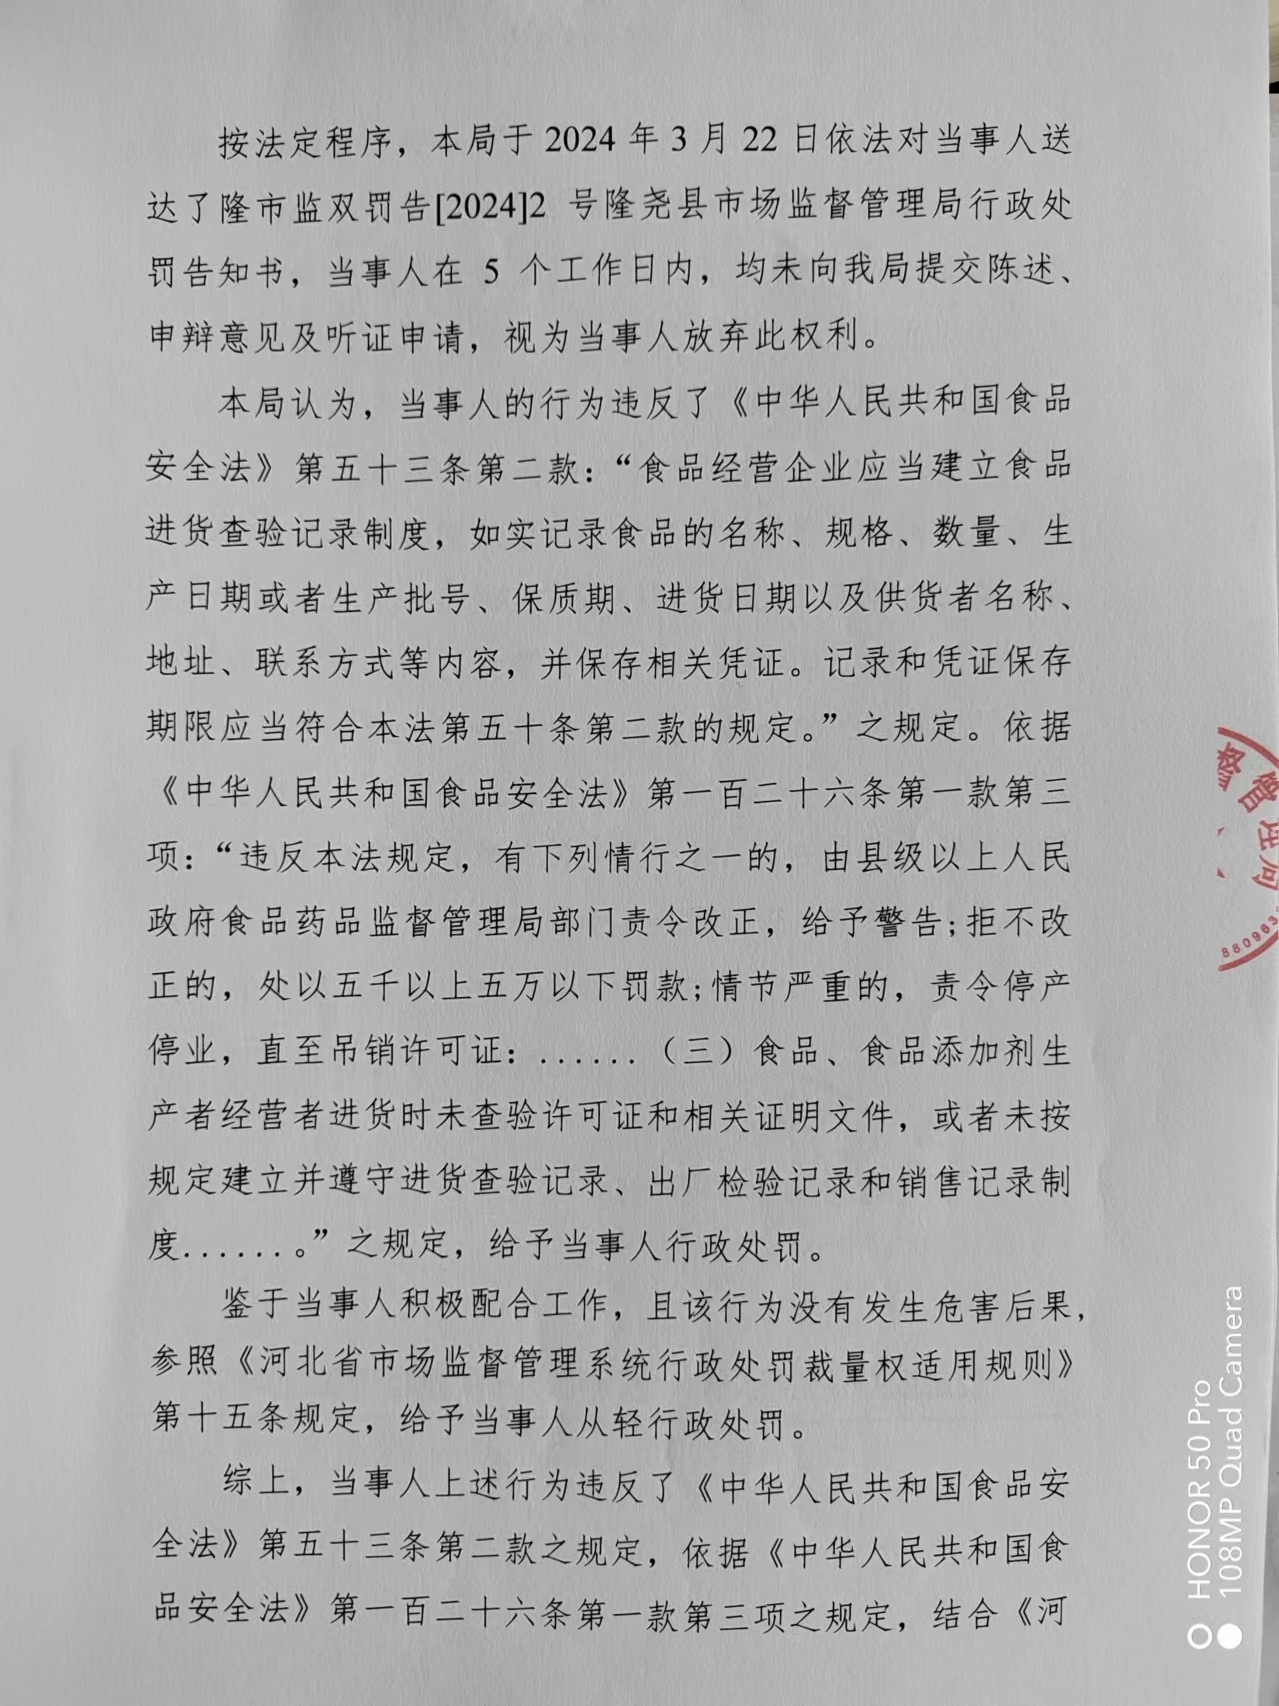 按法定程序，本局于 2024 年 3 月 22 日依法对当事人送
达了隆市监双罚告[2024]2 号隆尧县市场监督管理局行政处
罚告知书，当事人在 5 个工作日内，均未向我局提交陈述、
申辩意见及听证申请，视为当事人放弃此权利。
本局认为，当事人的行为违反了《中华人民共和国食品
安全法》第五十三条第二款：“食品经营企业应当建立食品
进货查验记录制度，如实记录食品的名称、规格、数量、生
产日期或者生产批号、保质期、进货日期以及供货者名称、
地址、联系方式等内容，并保存相关凭证。记录和凭证保存
期限应当符合本法第五十条第二款的规定。”之规定。依据
《中华人民共和国食品安全法》第一百二十六条第一款第三
项：“违反本法规定，有下列情行之一的，由县级以上人民
政府食品药品监督管理局部门责令改正，给予警告;拒不改
正的，处以五千以上五万以下罚款;情节严重的，责令停产
停业，直至吊销许可证：......（三）食品、食品添加剂生
产者经营者进货时未查验许可证和相关证明文件，或者未按
规定建立并遵守进货查验记录、出厂检验记录和销售记录制
度.......。”之规定，给予当事人行政处罚。
鉴于当事人积极配合工作，且该行为没有发生危害后果，
参照《河北省市场监督管理系统行政处罚裁量权适用规则》
第十五条规定，给予当事人从轻行政处罚。
综上，当事人上述行为违反了《中华人民共和国食品安
全法》第五十三条第二款之规定，依据《中华人民共和国食
品安全法》第一百二十六条第一款第三项之规定，结合《河
督管理局
880963
HONOR 50 Pro
108MP Quad Camera